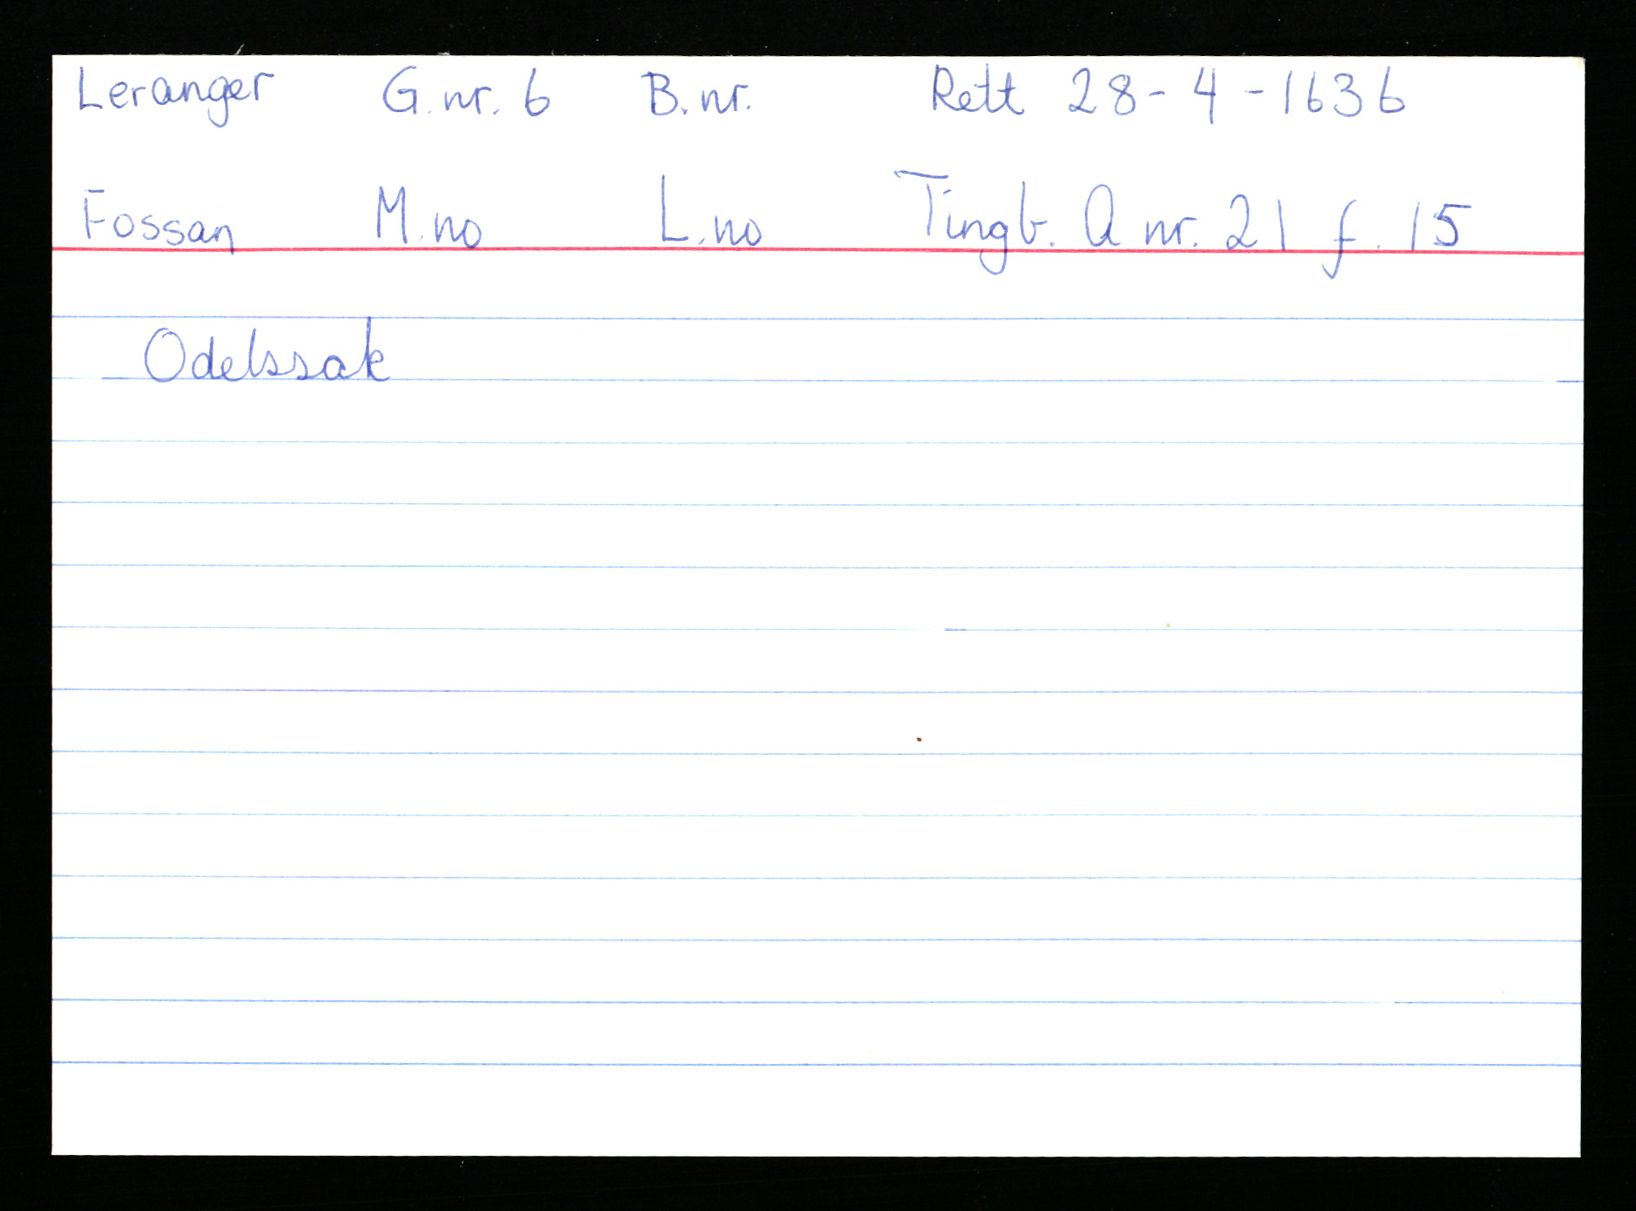 Leranger G.nr. 6 B.nr. Rett 28-4-1636
Fossan M.no L.no Tingb. A nr. 21 f. 15
Odelssak